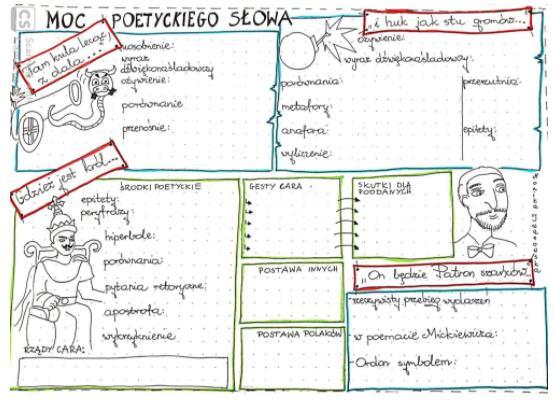 CS
MOC POETYCKIEGO SŁOWA
"Tam kula lecąc
z dala..."
uosobienie:
wyraz
dźwiękonaśladowczy
ożywienie:
porównanie
przenośnie:
"...i huk jak stu gromów..."
ożywienie:
wyraz dźwiękonaśladowczy:
porównania:
przerzutnia:
metafory:
anafora:
epitety:
wyliczenie:
Gdzież jest król...
ŚRODKI POETYCKIE
epitety:
peryfrazy:
hiperbole:
porównania:
pytania retoryczne:
apostrofa:
wykrzyknienie
RZĄDY CARA:
GESTY CARA
SKUTKI DLA
PODDANYCH
POSTAWA INNYCH
POSTAWA POLAKÓW
"On będzie Patron szańców"
-rzeczywisty przebieg wydarzeń
-w poemacie Mickiewicza:
-Ordon symbolem: